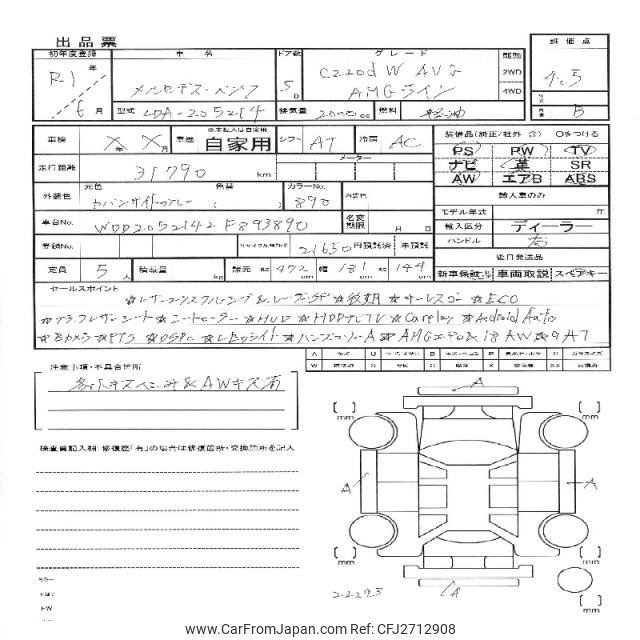 出品票
初年度登録 車名 ドア数 グレード 駆動 評価点
R1年 メルセデス・ベンツ 5D C220d W AVG 2WD 4.5
6月 AMGライン 4WD
型式 LDA-205214 排気量 2000 cc 燃料 軽油 B
車検 X年X月 車歴 ※未記入は自家用 自家用 シフト AT 冷房 AC 装備品(純正/社外 含) Oをつける
PS PW TV
走行距離 31790 km メーター ナビ 革 SR
AW エアB ABS
外装色 元色 色替 ( ) カラーNo. 890 内装色
輸入車のみ
車台No. WDD2052142F893890 名変期限 月 日 モデル年式 年
輸入区分 ディーラー
登録No. リサイクル預託金 21630 円預託済 未預託 ハンドル 右
後日発送品
定員 5人 積載量 kg 諸元 長 472 cm 幅 181 cm 高 144 cm 新車保証書 車両取説 スペアキー
セールスポイント
☆レーザーエクスクルーシブ&レーダーSP ☆後期 ☆サーレスゴー ☆ECO
☆ブラックレザーシート ☆シートヒーター ☆HUD ☆HDDナビTV ☆Carplay ☆Android Auto
☆Bカメラ ☆PTS ☆DSPC ☆LEDライト ☆AMGエアロ&18AW ☆9AT
注意事項・不具合箇所
多少キズヘコミ&AWキズ有
検査員記入欄 修復歴「有」の場合は修復箇所・交換箇所を記入
A
[ ] mm [ ] mm
A A
[ ] mm [ ] mm
A
[ ] mm
www.CarFromJapan.com #CFJ2712908